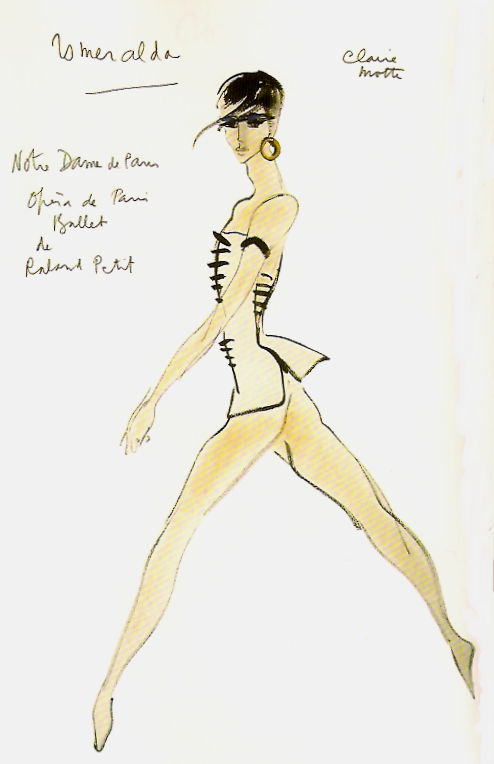 Esmeralda
Claire
Motte
Notre Dame de Paris
Opéra de Paris
Ballet
de
Roland Petit